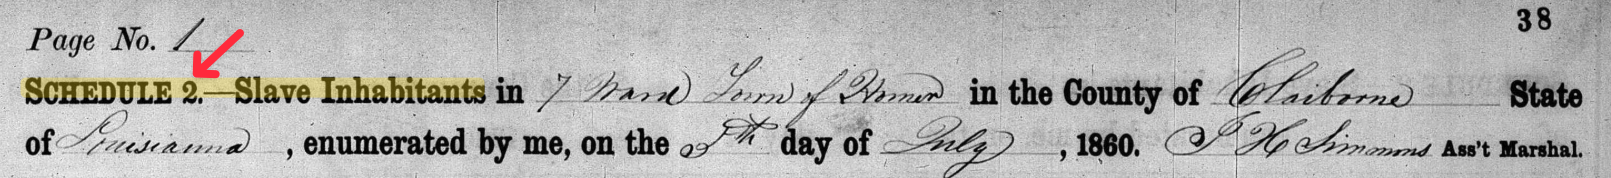 38
Page No. 1
SCHEDULE 2.—Slave Inhabitants in 7 Ward Town of Homer in the County of Claiborne State
of Louisianna, enumerated by me, on the 5th day of July, 1860. J H Simmons Ass't Marshal.